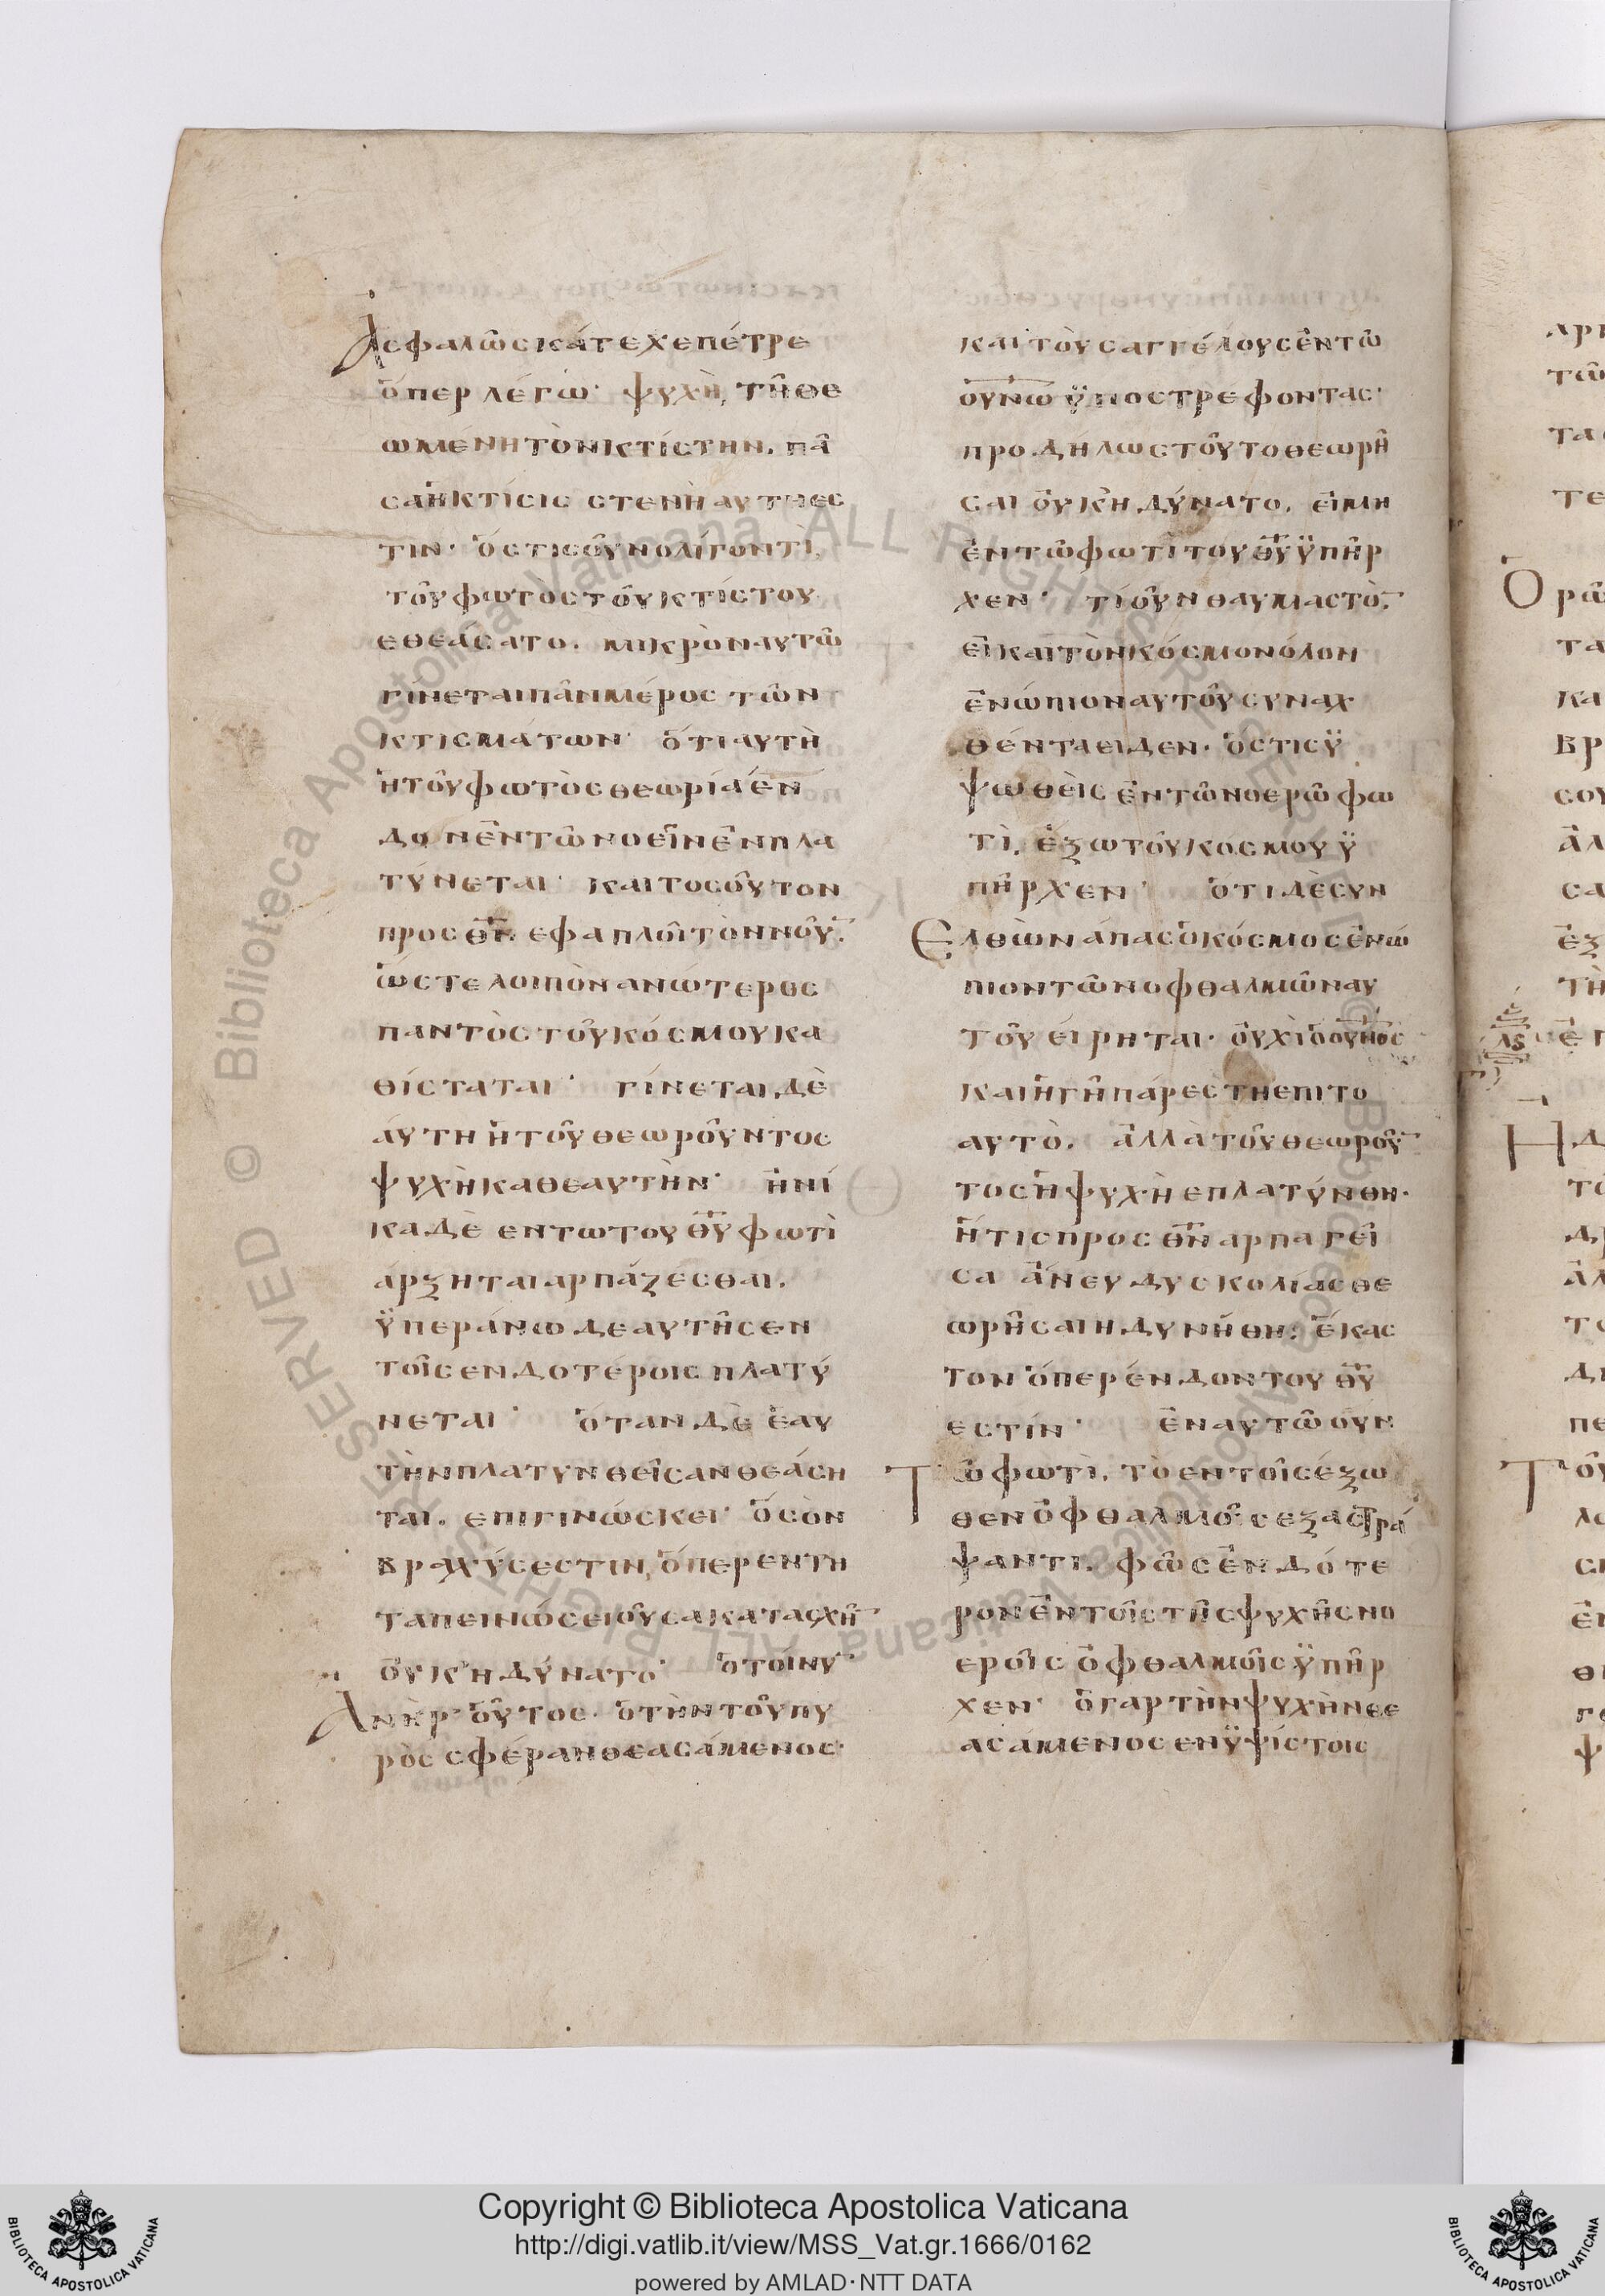 Ἀσφαλῶς κάτεχε πέτρε
ὅπερ λέγω· ψυχὴ, τῆ θε
ωμένη τὸν κτίστην, πᾶ
σα ἡ κτίσις στενὴ αυτη ες
τιν· ὅστις οὖν ολίγον τὶ,
τοῦ φωτὸς τοῦ κτίστου
εθεάσατο. μικρὸν αυτῶ
γίνεται πᾶν μέρος τῶν
κτισμάτων· ὅτι αυτὴ
ἡ τοῦ φωτὸς θεωρία ἐν
δον ἐν τῶ νοεῖν ἐνπλα
τύνεται· και τοσοῦτον
προς θ̅ν̅ εφαπλοῖ τὸν νοῦ̅.
ὥστε λοιπὸν ανώτερος
παντὸς τοῦ κόσμου κα
θίσταται· γίνεται δὲ
άυτη ἡ τοῦ θεωροῦντος
ψυχὴ καθεαυτὴν· ἡνί
κα δὲ εν τω του θ̅υ̅ φωτὶ
άρξηται αρπάζεσθαι.
ϋπεράνω δε αυτῆς εν
τοῖς ενδοτέροις πλατύ
νεται· ὅταν δὲ ἑαυ
τὴν πλατυνθεῖσαν θεάση
ται. επιγινώσκει· ὅσον
βραχύς εστιν, ὅπερ εν τη
ταπεινώσει οῦσα κατασχῆ̅
οὐκ ηδύνατο· ὁ τοίνυ̅
Ἀνὴρ οὗτος· ὁ τὴν τοῦ πυ
ρὸς σφέραν θεασάμενος·
και τοὺς αγγέλους ἐν τῶ
ο̅υ̅ν̅ω̅ ϋποστρεφοντας·
προδήλως τοῦτο θεωρῆ
σαι οὐκ ηδύνατο. εἰ μη
ἐν τῶ φωτὶ του θ̅υ̅ ϋπῆρ
χεν· τί οὖν θαυμαστὸ̅.
εἰ και τὸν κόσμον όλον
ἐνώπιον αυτοῦ συναχ
θέντα ειδεν· ὅστις ϋ
ψωθεὶς ἐν τῶ νοερῶ φω
τὶ, ἔξω τοῦ κόσμου ϋ
πῆρχεν· ὅτι δὲ συν
Ελθὼν άπας ὁ κόσμος ἐνώ
πιον τῶν οφθαλμῶν αυ
τοῦ είρηται· οὐχὶ ὁ ο̅υ̅ν̅ο̅ς̅
και ἡ γῆ πάρεστη επι το
αυτὸ. ἀλλὰ τοῦ θεωροῦ̅
τος ἡ ψυχὴ επλατύνθη·
ἥτις προς θ̅ν̅ αρπαγεῖ
σα ἄνευ δυσκολίας θε
ωρῆσαι ηδυνήθη: ἕκασ
τον ὅπερ ένδον του θ̅υ̅
εστίν· ἐν αυτῶ ουν
Τῶ φωτὶ, τὸ εν τοῖς έξω
θεν ὀφθαλμοῖς εξαστρά
ψαντι. φῶς ἐνδότε
ρον ἐν τοῖς τῆς ψυχῆς νο
εροῖς ὀφθαλμοῖς ϋπῆρ
χεν· ὁ γαρ τὴν ψυχὴν θε
ασάμενος εν ϋψίστοις
Copyright © Biblioteca Apostolica Vaticana
http://digi.vatlib.it/view/MSS_Vat.gr.1666/0162
powered by AMLAD·NTT DATA